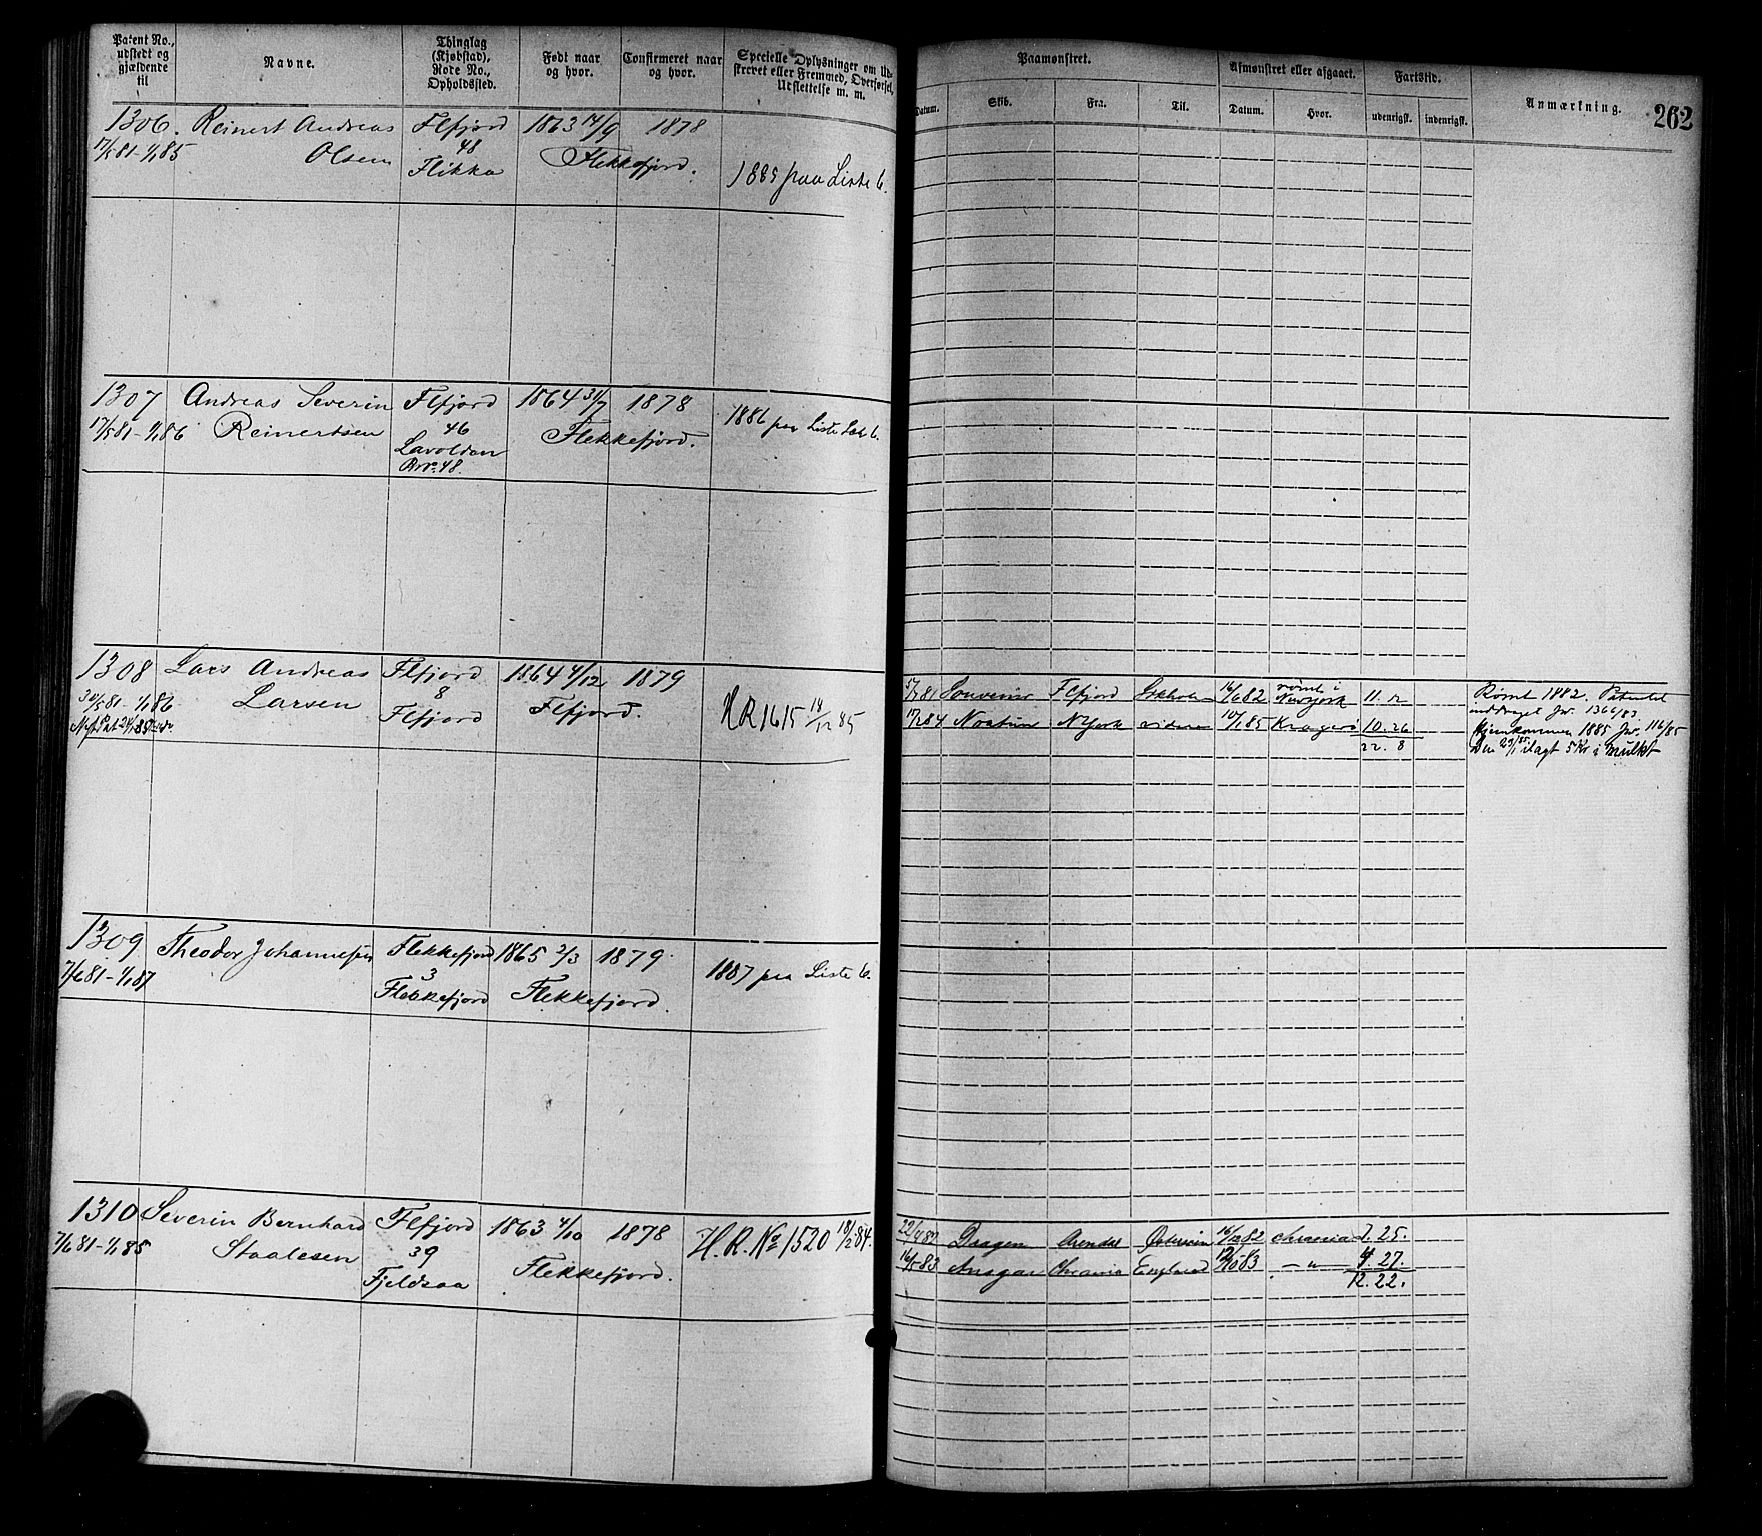 Patent No., udstedt og gjældende til
Navne.
Thinglag (Kjøbstad), Rode No., Opholdssted.
Født naar og hvor.
Confirmeret naar og hvor.
Specielle Oplysninger om Udskrevet eller Fremmed, Overførsel, Udslettelse m. m.
Paamønstret.
Datum.
Skib.
Fra.
Til.
Afmønstret eller afgaaet.
Datum.
Hvor.
Fartstid.
udenrigsk.
indenrigsk.
Anmærkning.
262
1306. Reinert Andreas Flfjord 1863 14/9 1878
17/5 81-1/1 85 Olsen 48 Flekkefjord.
Flikka
1885 paa Liste C.
1307 Andreas Severin Flfjord 1864 31/7 1878
17/5 81-1/1 86 Reinertsen 46 Flekkefjord.
Lavoldan
Rno. 48.
1886 paa Liste C.
1308 Lars Andreas Flfjord 1864 4/12 1879
31/5 81 1/1 86 Larsen 8 Flfjord.
Flfjord
HR 1615 18/12 85
5/7 81 Souvenir Flfjord 16/6 82 rømt i Newyork 11. 12
17/2 84 Noatun NYork 10/1 85 Kragerø 10. 26
22. 8
Rømt 1882. Patentet
inddraget Jw. 1366/83
Hjemkommen 1885 Jw. 116/85
Den 29/1 85 ilagt 5 Kr i Mulkt
1309 Theodor Johannesen Flekkefjord 1865 2/3 1879.
7/6 81-1/1 87 3 Flekkefjord.
Flekkefjord
1887 paa Liste C.
1310 Severin Bernhard Flfjord 1863 4/10 1878
7/6 81-1/1 85 Staalesen 39 Flekkefjord.
Fjeldsaa
H.R. No 1520 18/2 84.
22/4 82 Arendal 16/12 82 Chrania 7. 25.
16/5 83 Ansgar Chrania England 12/10 83 — " 4. 27.
12. 22.